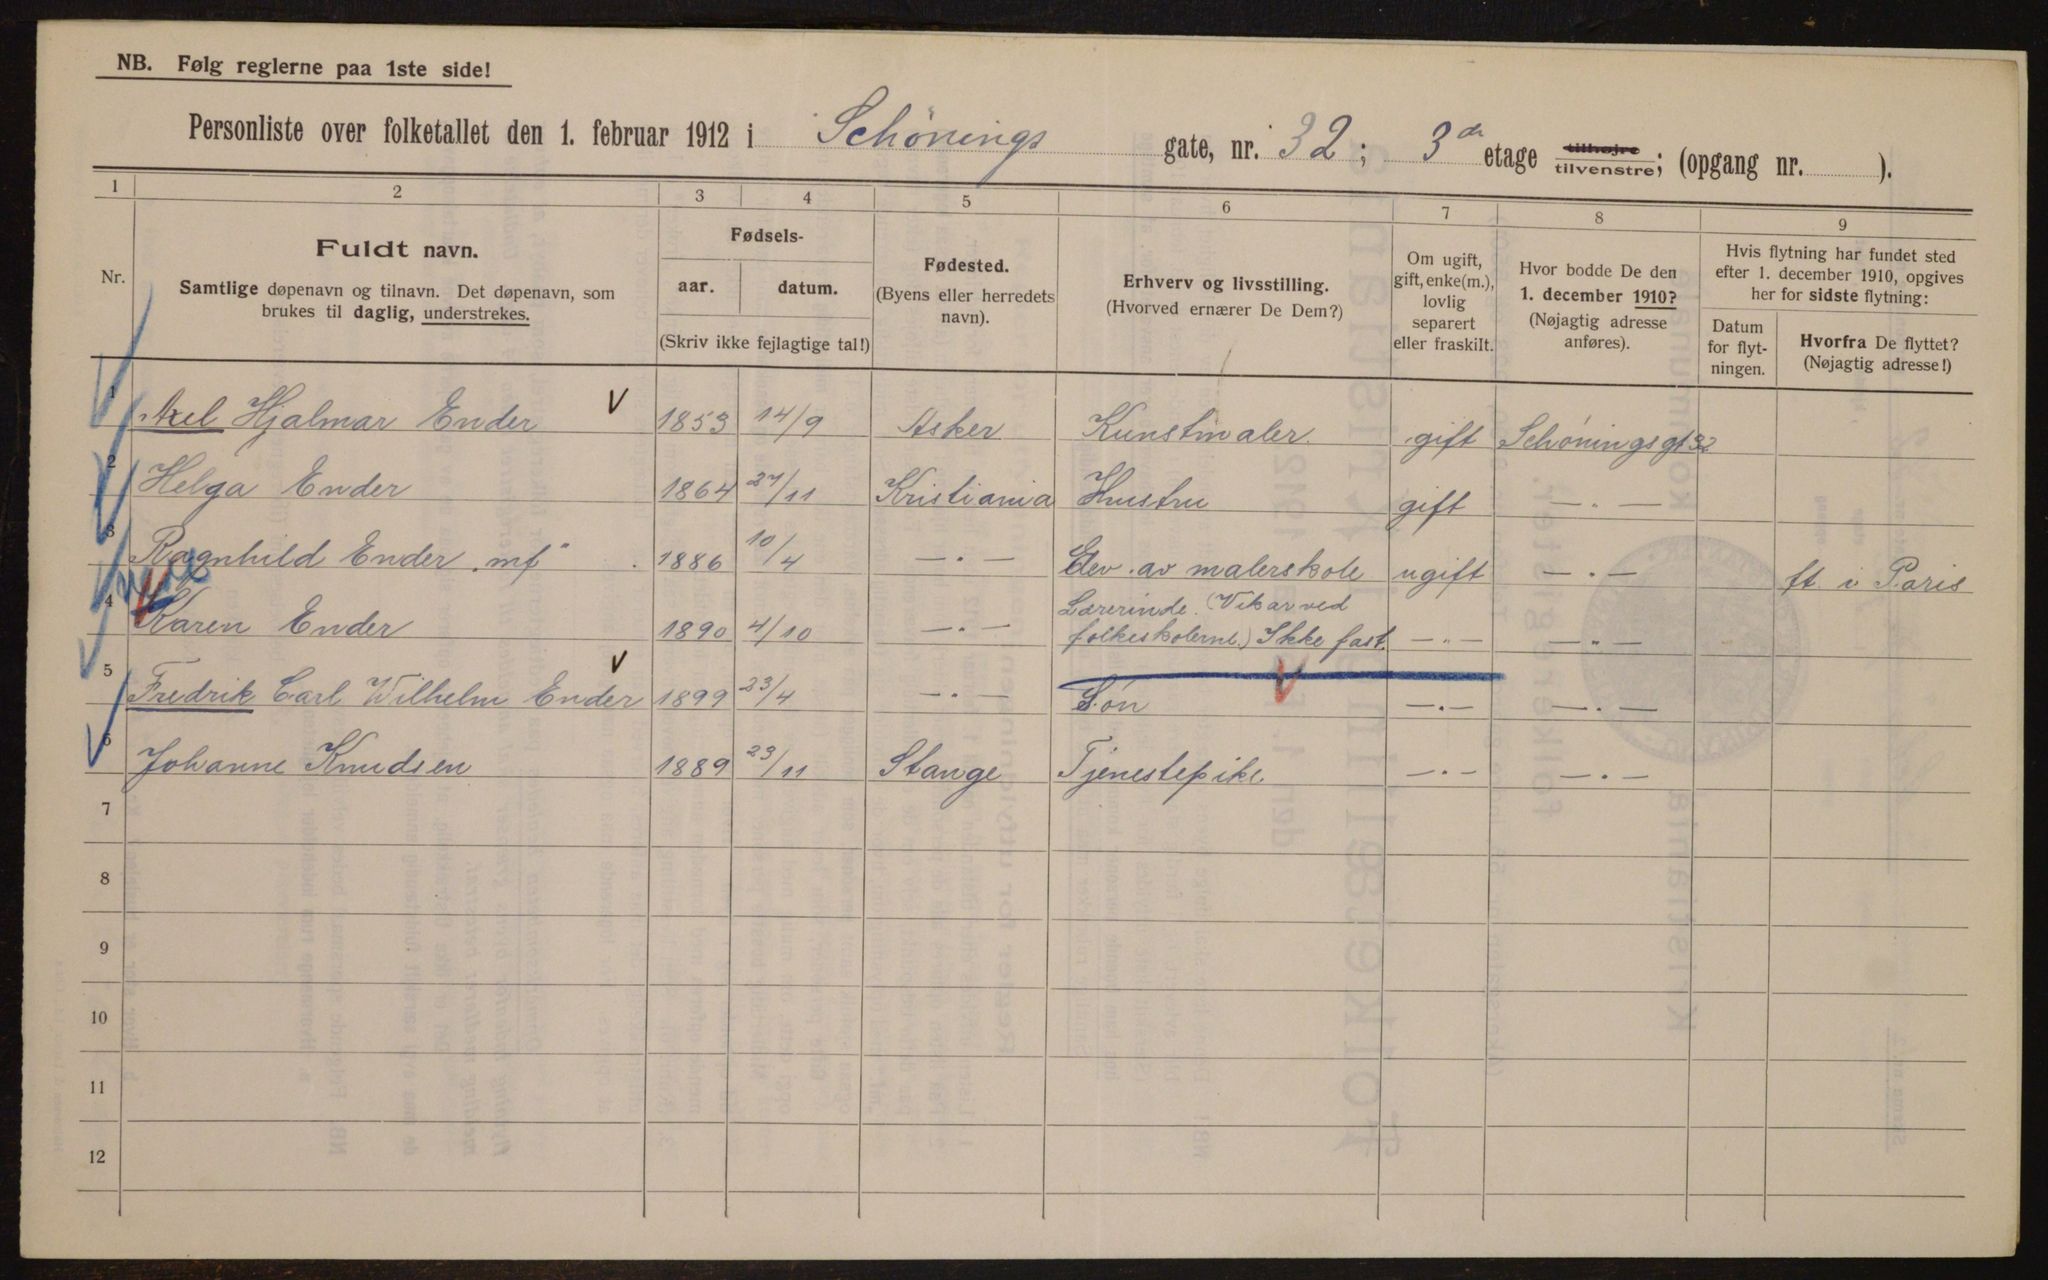 NB. Følg reglerne paa 1ste side!
Personliste over folketallet den 1. februar 1912 i Schønings gate, nr. 32; 3die etage tilhøjre tilvenstre; (opgang nr. ).
1 2 3 4 5 6 7 8 9
Nr.
Fuldt navn.
Samtlige døpenavn og tilnavn. Det døpenavn, som
brukes til daglig, understrekes.
Fødsels-
aar. datum.
(Skriv ikke fejlagtige tal!)
Fødested.
(Byens eller herredets
navn).
Erhverv og livsstilling.
(Hvorved ernærer De Dem?)
Om ugift,
gift, enke(m.),
lovlig
separert
eller fraskilt.
Hvor bodde De den
1. december 1910?
(Nøjagtig adresse
anføres).
Hvis flytning har fundet sted
efter 1. december 1910, opgives
her for sidste flytning:
Datum
for flyt-
ningen.
Hvorfra De flyttet?
(Nøjagtig adresse!)
1 Axel Hjalmar Ender 1853 14/9 Asker Kunstmaler. gift Schøningsgt 32
2 Helga Ender 1864 27/11 Kristiania Hustru gift — " —
3 Ragnhild Ender "mf" 1886 10/4 — " — Elev av malerskole ugift — " — ft i Paris
4 Karen Ender 1890 4/10 — " — Lærerinde. (Vikar ved
folkeskolerne) Ikke fast. — " — — " —
5 Fredrik Carl Wilhelm Ender 1899 23/4 — " — Søn — " — — " —
6 Johanne Knudsen 1889 23/11 Stange Tjenestepike — " — — " —
7
8
9
10
11
12